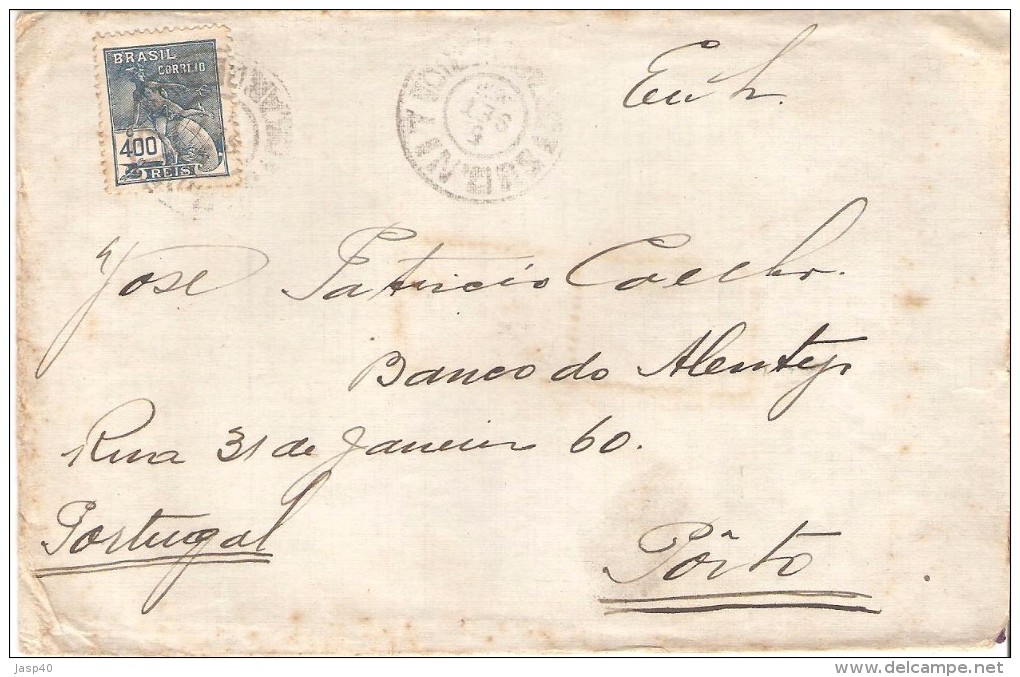 BRASIL
CORREIO
400
REIS
José Patricio Coelho.
Banco do Alentejo
Rua 31 de Janeiro 60.
Portugal
Pôrto
Jasp40
www.delcampe.net